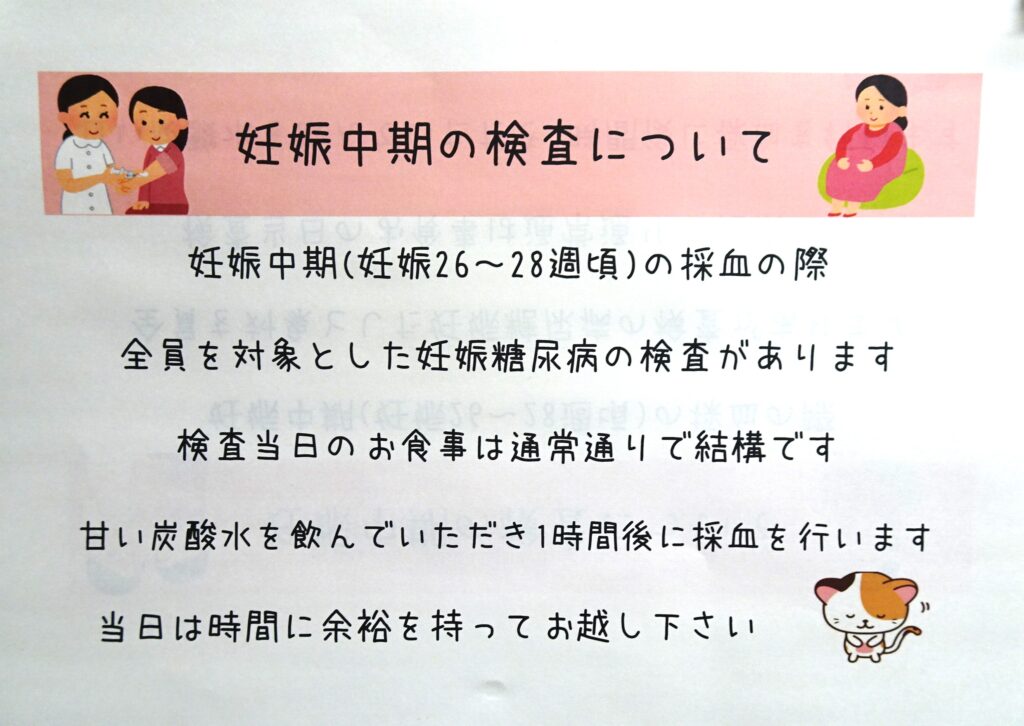 妊娠中期の検査について
妊娠中期(妊娠26～28週頃)の採血の際
全員を対象とした妊娠糖尿病の検査があります
検査当日のお食事は通常通りで結構です
甘い炭酸水を飲んでいただき1時間後に採血を行います
当日は時間に余裕を持ってお越し下さい